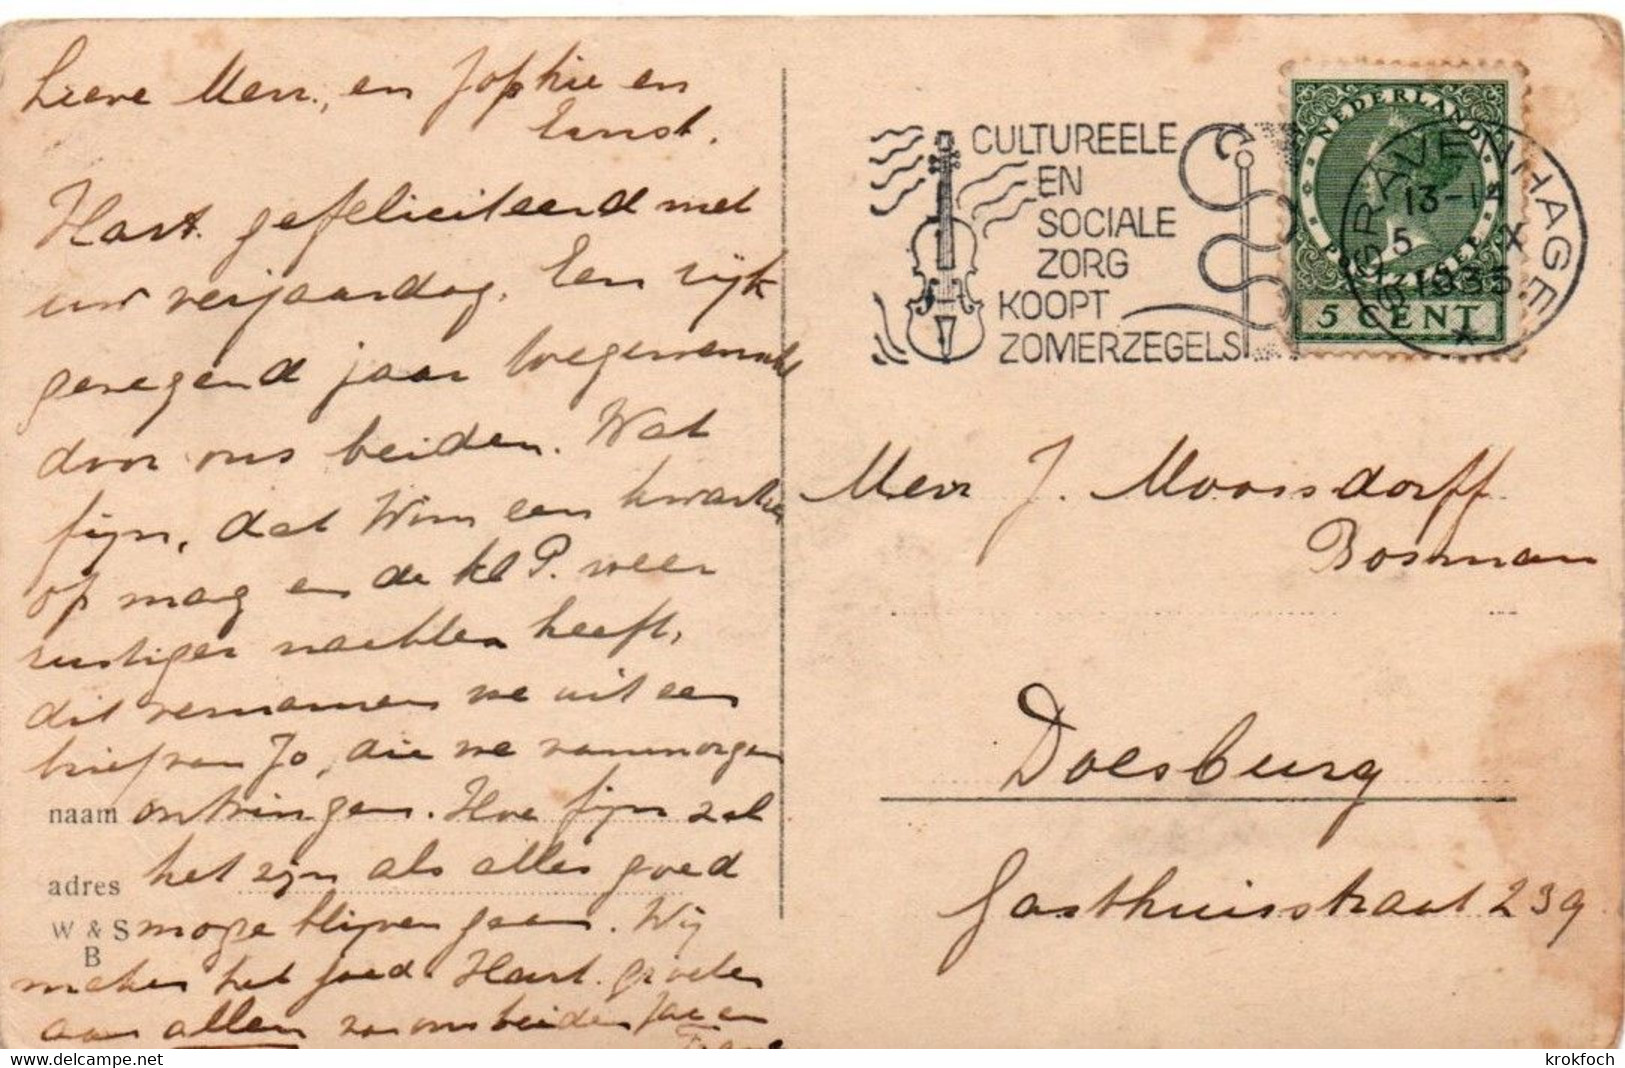 Lieve Merr., en Jophie en
Ernst.
Hart. gefeliciteerd met
uw verjaardag. Een rijk
gezegend jaar toegewenscht
door ons beiden. Wat
fijn, dat Wim een kwartier
op mag en de kl P. weer
rustiger nachten heeft,
dit vernamen we uit een
brief van Jo, die we vanmorgen
naam ontvingen. Hoe fijn zal
adres het zijn als alles goed
W & S moge blijven gaan. Wij
B
maken het goed. Hart. groeten
aan allen van ons beiden Jac en
CULTUREELE
EN
SOCIALE
ZORG
KOOPT
ZOMERZEGELS
NEDERLAND
POSTZEGEL
5 CENT
'S GRAVENHAGE
5 X
1935
Merr J. Moorsdorff
Bosman
Doesburg
Gasthuisstraat 239
krokfoch